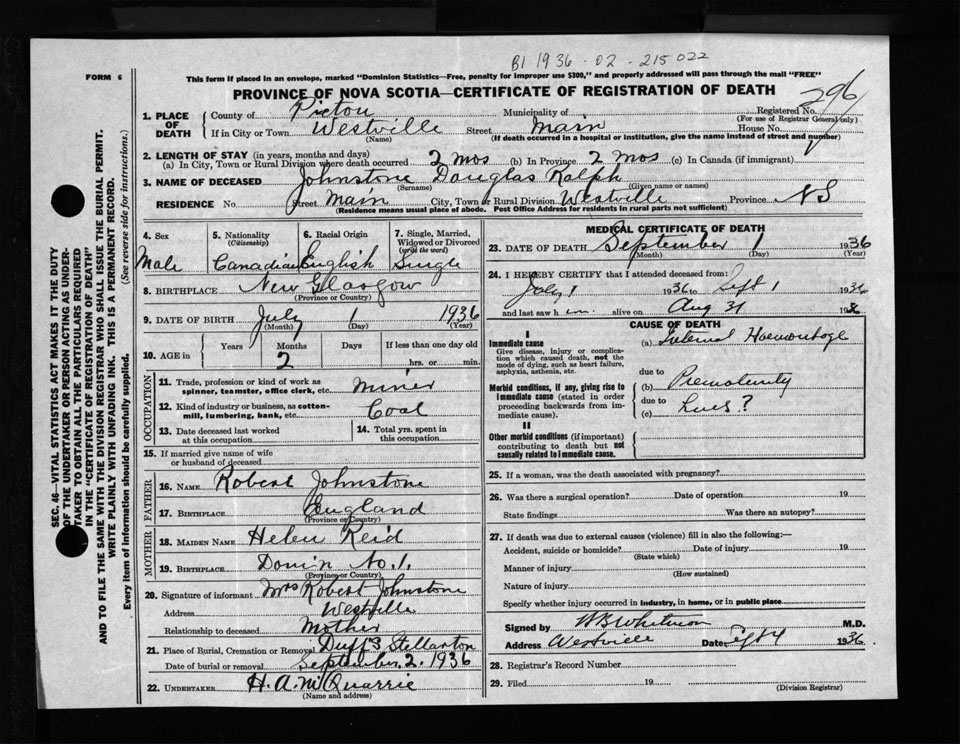 B1 1936 - 02 - 215022
FORM 6
This form if placed in an envelope, marked "Dominion Statistics—Free, penalty for improper use $300," and properly addressed will pass through the mail "FREE"
PROVINCE OF NOVA SCOTIA—CERTIFICATE OF REGISTRATION OF DEATH
296
SEC. 46—VITAL STATISTICS ACT MAKES IT THE DUTY
OF THE UNDERTAKER OR PERSON ACTING AS UNDER-
TAKER TO OBTAIN ALL THE PARTICULARS REQUIRED
IN THE "CERTIFICATE OF REGISTRATION OF DEATH"
AND TO FILE THE SAME WITH THE DIVISION REGISTRAR WHO SHALL ISSUE THE BURIAL PERMIT.
WRITE PLAINLY WITH UNFADING INK. THIS IS A PERMANENT RECORD.
Every item of information should be carefully supplied. (See reverse side for instructions.)
1. PLACE OF DEATH
County of Pictou Municipality of Registered No.
(For use of Registrar General only)
If in City or Town Westville Street Main House No.
(Name) (If death occurred in a hospital or institution, give the name instead of street and number)
2. LENGTH OF STAY (in years, months and days)
(a) In City, Town or Rural Division where death occurred 2 mos (b) In Province 2 mos (c) In Canada (if immigrant)
3. NAME OF DECEASED Johnstone Douglas Ralph
(Surname) (Given name or names)
RESIDENCE No. Street Main City, Town or Rural Division Westville Province NS
(Residence means usual place of abode. Post Office Address for residents in rural parts not sufficient)
4. Sex Male
5. Nationality (Citizenship) Canadian
6. Racial Origin English
7. Single, Married, Widowed or Divorced (write the word) Single
8. BIRTHPLACE New Glasgow
(Province or Country)
9. DATE OF BIRTH July 1 1936
(Month) (Day) (Year)
10. AGE in Years Months Days If less than one day old
2 hrs. or min.
OCCUPATION
11. Trade, profession or kind of work as spinner, teamster, office clerk, etc. Miner
12. Kind of industry or business, as cotton-mill, lumbering, bank, etc. Coal
13. Date deceased last worked at this occupation
14. Total yrs. spent in this occupation
15. If married give name of wife or husband of deceased
FATHER
16. NAME Robert Johnstone
17. BIRTHPLACE England
(Province or Country)
MOTHER
18. MAIDEN NAME Helen Reid
19. BIRTHPLACE Dom'n No. 1.
(Province or Country)
20. Signature of informant Mrs Robert Johnstone
Address Westville
Relationship to deceased Mother
21. Place of Burial, Cremation or Removal Duff's Stellarton
Date of burial or removal September 2. 1936
22. UNDERTAKER H. A. McQuarrie
(Name and address)
MEDICAL CERTIFICATE OF DEATH
23. DATE OF DEATH September 1 1936
(Month) (Day) (Year)
24. I HEREBY CERTIFY that I attended deceased from:
July 1 1936 to Sept 1 1936
and last saw h im alive on Aug 31 193
CAUSE OF DEATH
I
Immediate cause
Give disease, injury or complication which caused death, not the mode of dying, such as heart failure, asphyxia, asthenia, etc.
(a) Internal Haemorrhage
due to
Morbid conditions, if any, giving rise to immediate cause (stated in order proceeding backwards from immediate cause).
(b) Prematurity
due to
(c) Lues?
II
Other morbid conditions (if important) contributing to death but not causally related to immediate cause.
25. If a woman, was the death associated with pregnancy?
26. Was there a surgical operation? Date of operation 19
State findings Was there an autopsy?
27. If death was due to external causes (violence) fill in also the following:—
Accident, suicide or homicide? Date of injury 19
(State which)
Manner of injury
(How sustained)
Nature of injury
Specify whether injury occurred in industry, in home, or in public place
Signed by Whitman M.D.
Address Westville Date Sept 4 1936
28. Registrar's Record Number
29. Filed 19
(Division Registrar)